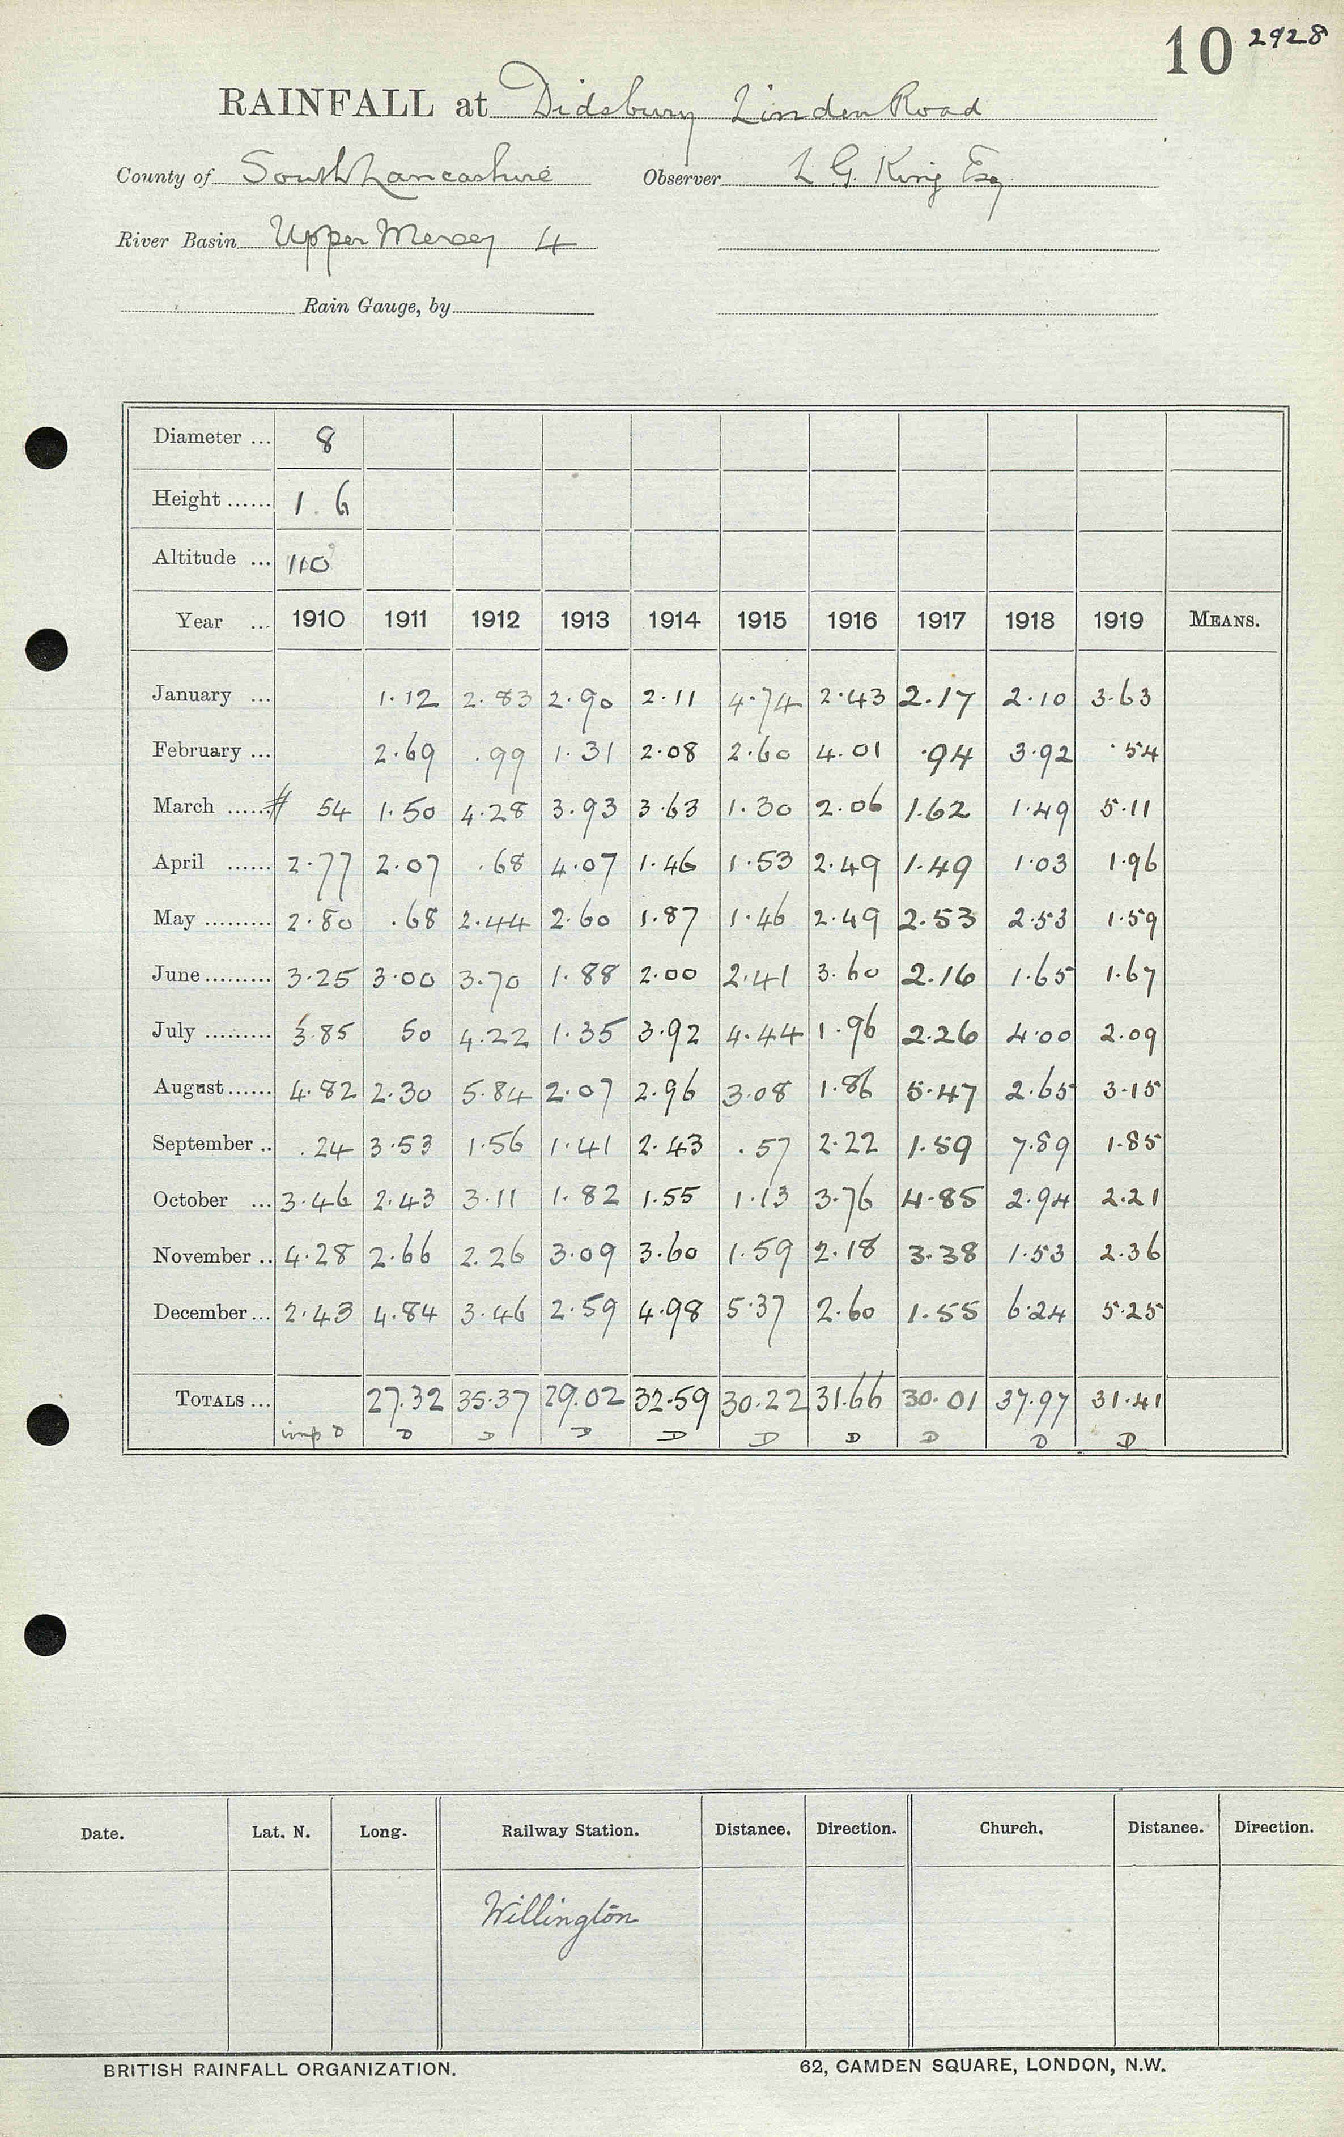 10 2928
RAINFALL at Didsbury Linden Road
County of South Lancashire Observer L G. King Esq
River Basin Upper Mersey 4
Rain Gauge, by
Diameter ... 8
Height ...... 1. 6
Altitude ... 110
Year ... 1910 1911 1912 1913 1914 1915 1916 1917 1918 1919 MEANS.
January ... 1.12 2.83 2.90 2.11 4.74 2.43 2.17 2.10 3.63
February ... 2.69 .99 1.31 2.08 2.60 4.01 .94 3.92 .54
March ...... # 54 1.50 4.28 3.93 3.63 1.30 2.06 1.62 1.49 5.11
April ...... 2.77 2.07 .68 4.07 1.46 1.53 2.49 1.49 1.03 1.96
May ......... 2.80 .68 2.44 2.60 1.87 1.46 2.49 2.53 2.53 1.59
June ......... 3.25 3.00 3.70 1.88 2.00 2.41 3.60 2.16 1.65 1.67
July ......... 3.85 50 4.22 1.35 3.92 4.44 1.96 2.26 4.00 2.09
August ...... 4.82 2.30 5.84 2.07 2.96 3.08 1.86 5.47 2.65 3.15
September .. .24 3.53 1.56 1.41 2.43 .57 2.22 1.59 7.89 1.85
October ... 3.46 2.43 3.11 1.82 1.55 1.13 3.76 4.85 2.94 2.21
November .. 4.28 2.66 2.26 3.09 3.60 1.59 2.18 3.38 1.53 2.36
December ... 2.43 4.84 3.46 2.59 4.98 5.37 2.60 1.55 6.24 5.25
TOTALS ... 27.32 35.37 29.02 32.59 30.22 31.66 30.01 37.97 31.41
imp D D D D D D D D D D
Date. Lat. N. Long. Railway Station. Distance. Direction. Church. Distance. Direction.
Willington
BRITISH RAINFALL ORGANIZATION. 62, CAMDEN SQUARE, LONDON, N.W.